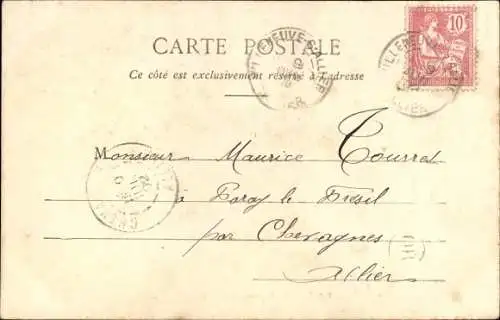 CARTE POSTALE
Ce côté est exclusivement réservé à l'adresse
10
VILLENEUVE-S-ALLIER
Monsieur Maurice Tourret
à Paray le Frésil
par Chevagnes
Allier